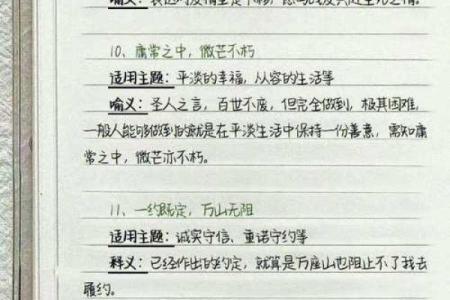 10、庸常之中，微芒不朽
适用主题：平淡的幸福，从容的生活等
喻义：圣人之言，百世不废，但完全做到，极其困难，
一般人能够做到的就是在平淡生活中保持一份善意，需知庸
常之中，微芒亦不朽。
11、一约既定，万山无阻
适用主题：诚实守信、重诺守约等
释义：已经作出的约定，就算是万座山也阻止不了我去
履约。